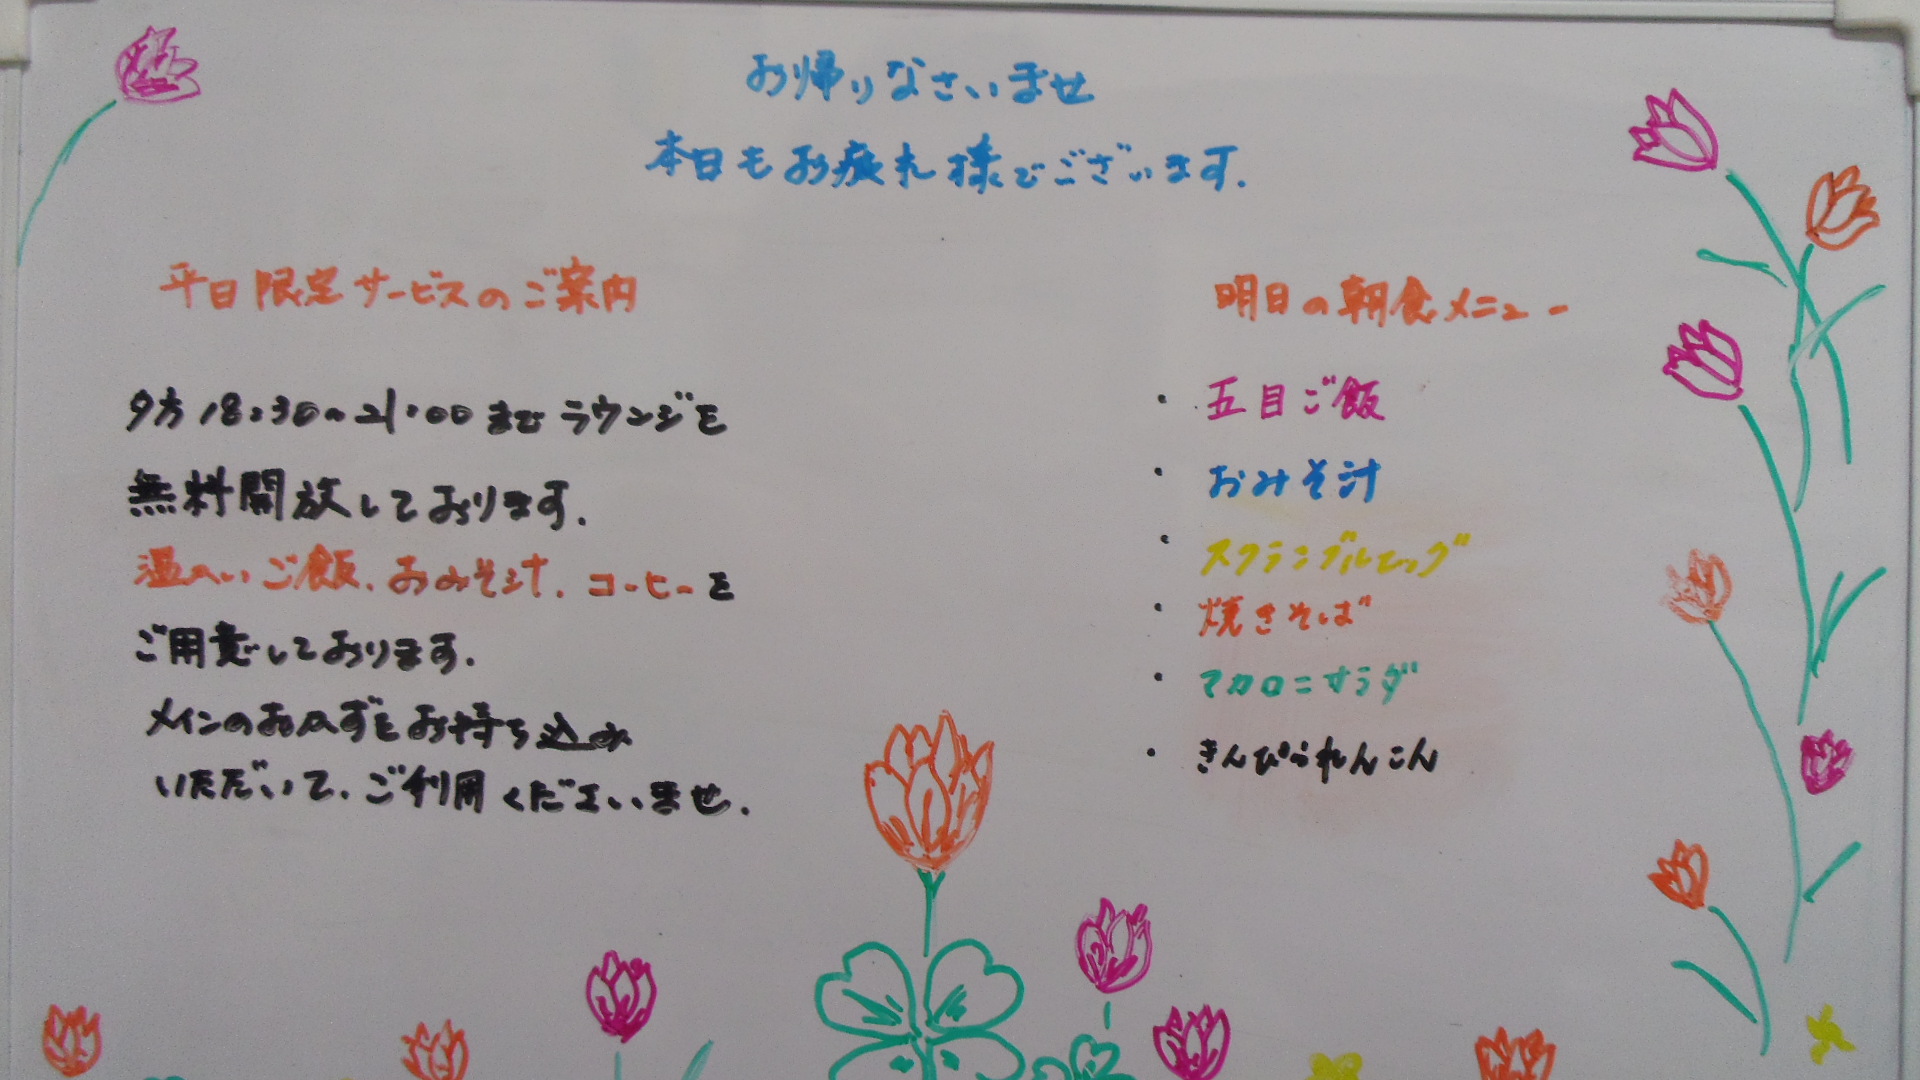 お帰りなさいませ
本日もお疲れ様でございます.
平日限定サービスのご案内
夕方18:30~21:00までラウンジを
無料開放しております.
温かいご飯.おみそ汁.コーヒーを
ご用意しております.
メインのおかずをお持ち込み
いただいて.ご利用くださいませ.
明日の朝食メニュー
・五目ご飯
・おみそ汁
・スクランブルエッグ
・焼きそば
・マカロニサラダ
・きんぴられんこん